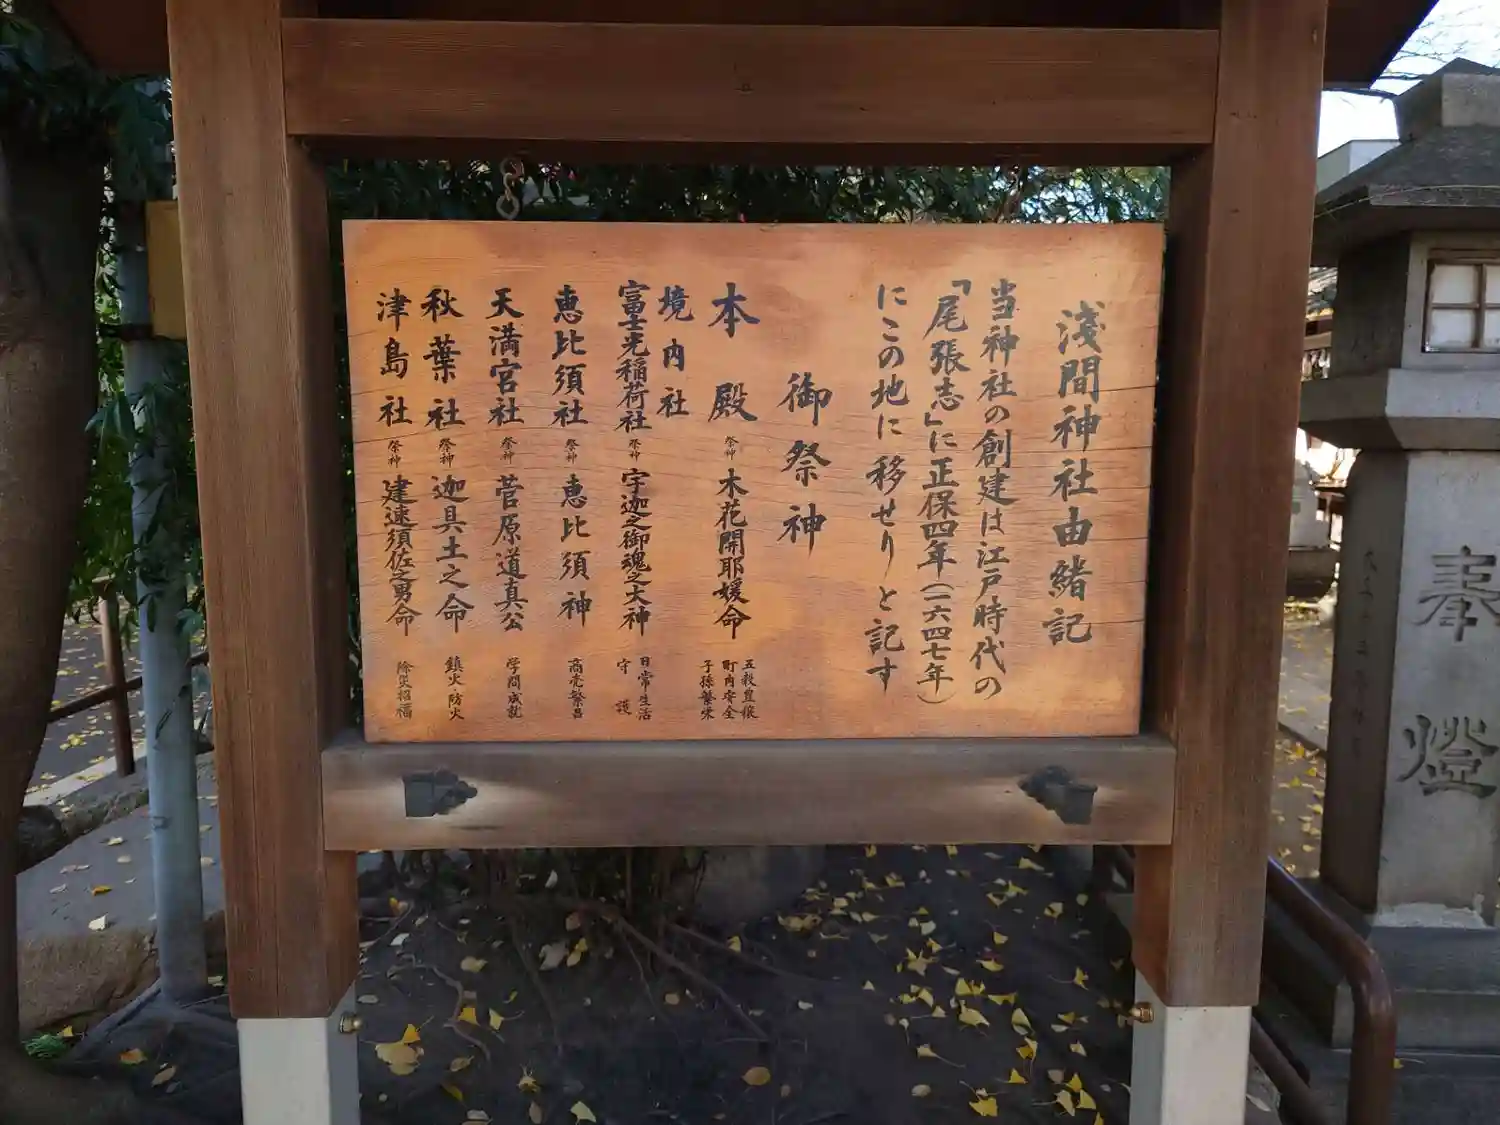 淺間神社由緒記
当神社の創建は江戸時代の
「尾張志」に正保四年(一六四七年)
にこの地に移せりと記す
御祭神
本殿 祭神 木花開耶媛命 五穀豊穣 町内安全 子孫繁栄
境内社
富士光稲荷社 祭神 宇迦之御魂之大神 日常生活守護
恵比須社 祭神 恵比須神 商売繁昌
天満宮社 祭神 菅原道真公 学問成就
秋葉社 祭神 迦具土之命 鎮火・防火
津島社 祭神 建速須佐之男命 除災招福
奉燈